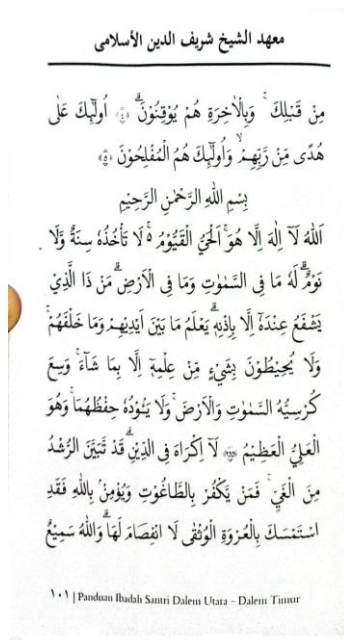 معهد الشيخ شريف الدين الأسلامى
مِنْ قَبْلِكَ ۚ وَبِالْاٰخِرَةِ هُمْ يُوْقِنُوْنَۗ ﴿٤﴾ اُولٰۤىِٕكَ عَلٰى
هُدًى مِّنْ رَّبِّهِمْ ۙ وَاُولٰۤىِٕكَ هُمُ الْمُفْلِحُوْنَ ﴿٥﴾
بِسْمِ اللهِ الرَّحْمٰنِ الرَّحِيْمِ
اَللهُ لَآ اِلٰهَ اِلَّا هُوَۚ اَلْحَيُّ الْقَيُّوْمُ ەۚ لَا تَأْخُذُهٗ سِنَةٌ وَّلَا
نَوْمٌۗ لَهٗ مَا فِى السَّمٰوٰتِ وَمَا فِى الْاَرْضِۗ مَنْ ذَا الَّذِيْ
يَشْفَعُ عِنْدَهٗٓ اِلَّا بِاِذْنِهٖۗ يَعْلَمُ مَا بَيْنَ اَيْدِيْهِمْ وَمَا خَلْفَهُمْۚ
وَلَا يُحِيْطُوْنَ بِشَيْءٍ مِّنْ عِلْمِهٖٓ اِلَّا بِمَا شَاۤءَۚ وَسِعَ
كُرْسِيُّهُ السَّمٰوٰتِ وَالْاَرْضَۚ وَلَا يَـُٔوْدُهٗ حِفْظُهُمَاۚ وَهُوَ
الْعَلِيُّ الْعَظِيْمُ ﴿٢٥٥﴾ لَآ اِكْرَاهَ فِى الدِّيْنِۗ قَدْ تَّبَيَّنَ الرُّشْدُ
مِنَ الْغَيِّۚ فَمَنْ يَّكْفُرْ بِالطَّاغُوْتِ وَيُؤْمِنْۢ بِاللهِ فَقَدِ
اسْتَمْسَكَ بِالْعُرْوَةِ الْوُثْقٰى لَا انْفِصَامَ لَهَاۗ وَاللهُ سَمِيْعٌ
١٠١ | Panduan Ibadah Santri Dalem Utara – Dalem Timur